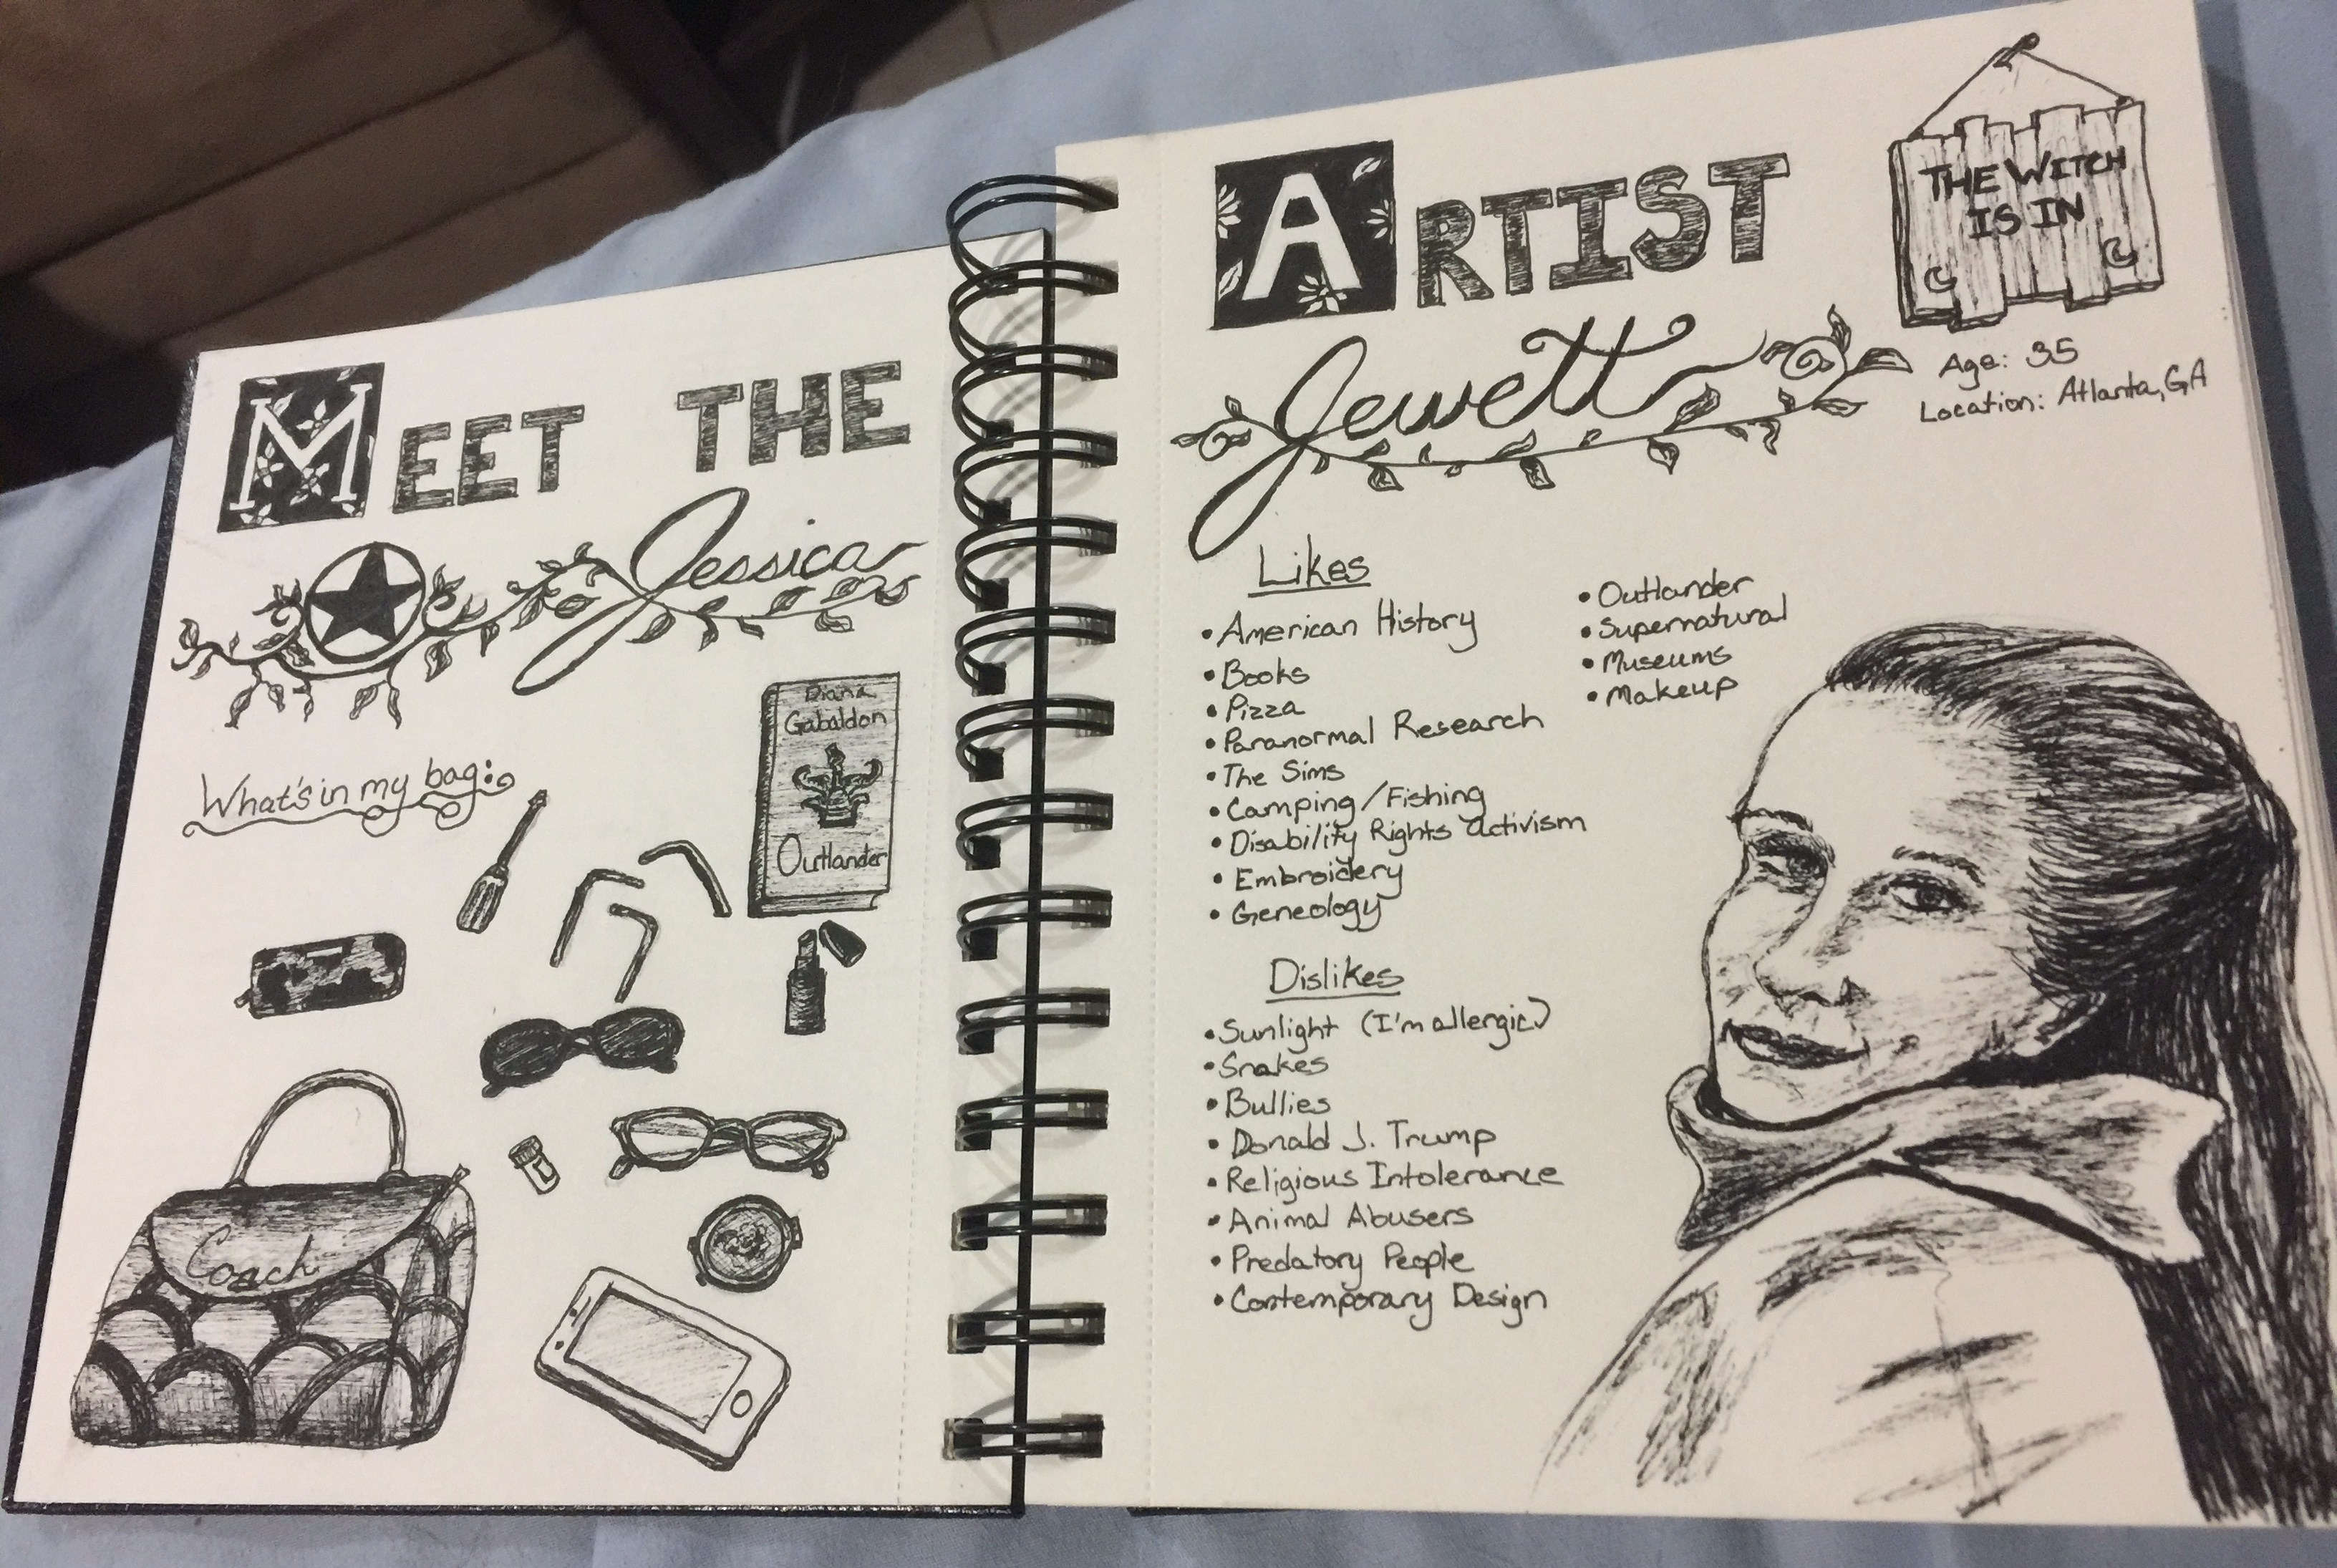 MEET THE
Jessica
What's in my bag:
Diana
Gabaldon
Outlander
Coach
ARTIST
Jewett
THE WITCH
IS IN
Age: 35
Location: Atlanta, GA
Likes
• American History
• Books
• Pizza
• Paranormal Research
• The Sims
• Camping/Fishing
• Disability Rights Activism
• Embroidery
• Geneology
• Outlander
• Supernatural
• Museums
• Makeup
Dislikes
• Sunlight (I'm allergic)
• Snakes
• Bullies
• Donald J. Trump
• Religious Intolerance
• Animal Abusers
• Predatory People
• Contemporary Design